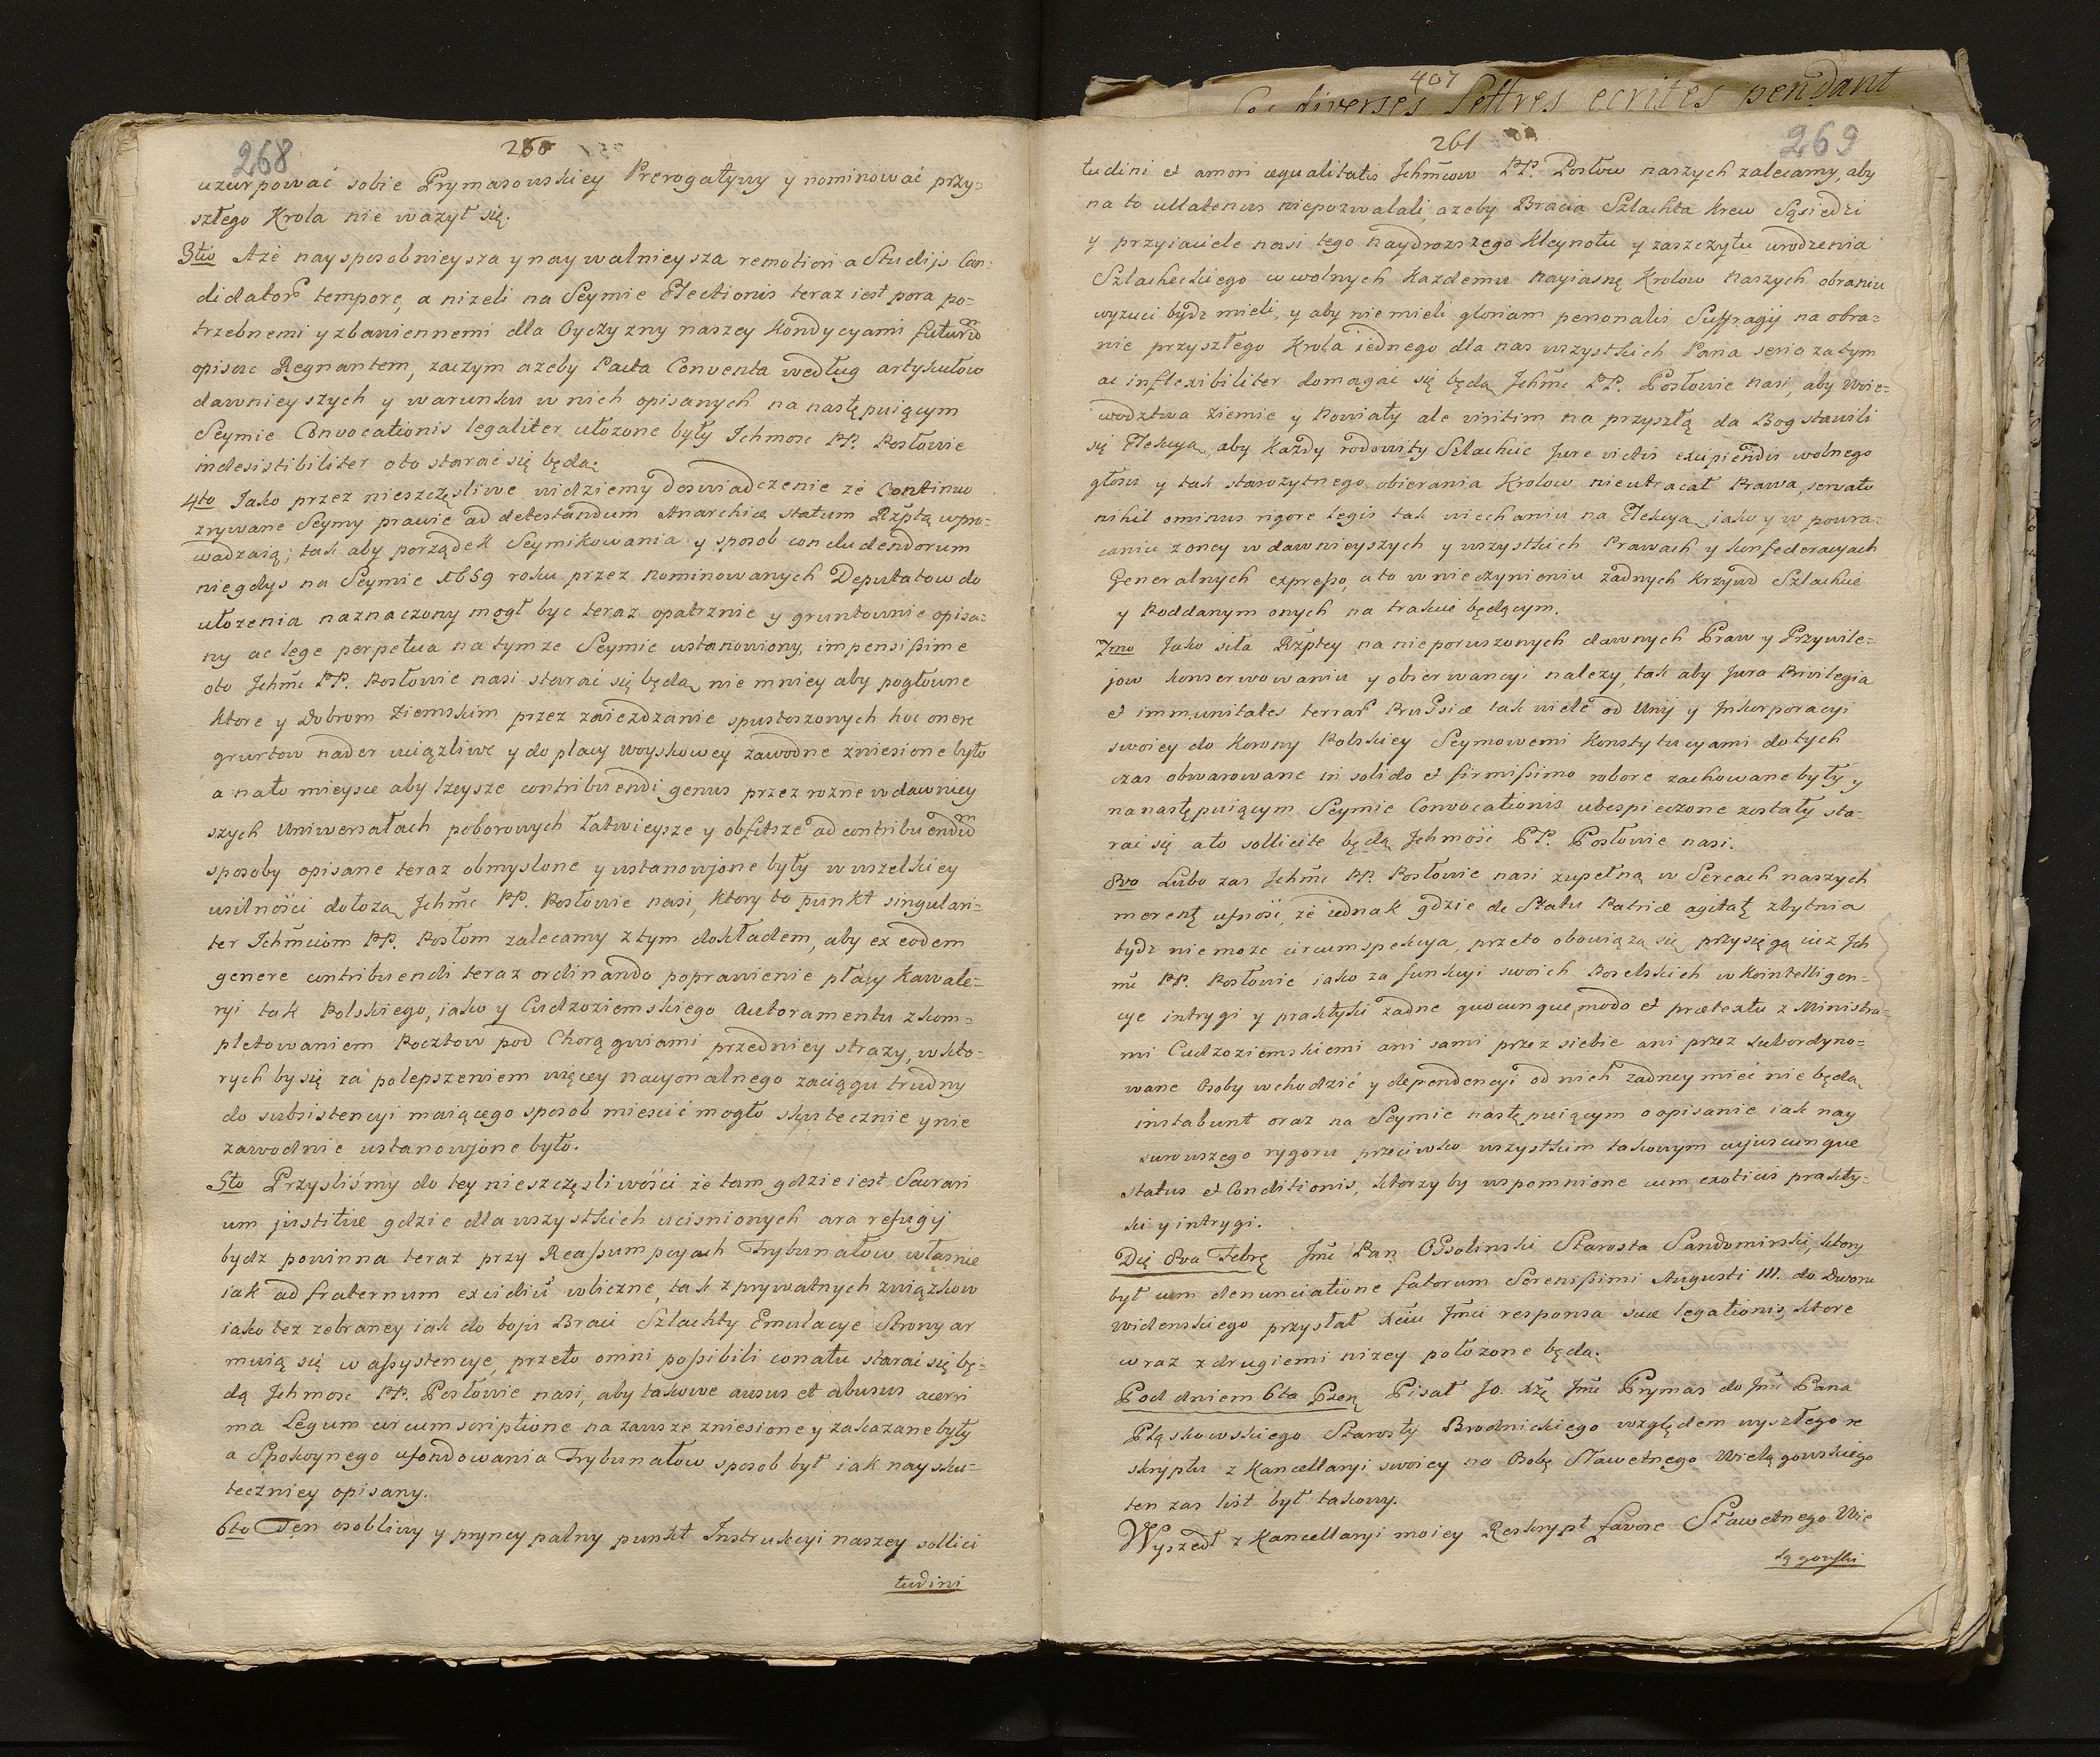 268
260
uzurpować sobie Prymasowskiey Prerogatywy y nominować przy=
szłego Krola nie wazył się.
3tio Aże naysposobnieysza y naywalnieysza remotiori a Studijs Can=
didator̃ tempore, a nizeli na Seymie Electionis teraz iest pora po=
trzebnemi y zbawiennemi dla Oyczyzny naszey Kondycyami futurũ
opisac Regnantem, zaczym azeby Pacta Conventa według artykułow
dawnieyszych y warunku w nich opisanych na następuiącym
Seymie Convocationis legaliter ułozone były Ichmosc PP. Posłowie
indesistibiliter oto starać się będą.
4to Jako przez nieszczęsliwe widziemy doswiadczenie ze Continuo
zrywane Seymy prawie ad detestandum Anarchiæ statum Rzptą wpro=
wadzaią; tak aby porządek Seymikowania y sposob concludendorum
niegdys na Seymie 1659 roku przez nominowanych Deputatow do
ułozenia naznaczony mogł byc teraz opatrznie y gruntownie opisa=
ny ac lege perpetua na tymze Seymie ustanowiony, impensissime
oto Jchmc PP. Posłowie nasi starai się będą, nie mniey aby pogłowne
ktore y Dobrom Ziemskim przez zaiezdzanie spustoszonych hoc onere
gruntow nader uciązliwe y do płacy woyskowey zawodne zniesione było
a nato mieysce aby lzeysze contribuendi genus przez rozne w dawniey
szych Uniwersałach poborowych łatwieysze y obfitsze ad contribuendũ
sposoby opisane teraz obmyslone y ustanowjone były w wszelkiey
usilności dołozą Jchmc PP. Posłowie nasi, ktory to punkt singulari=
ter Ichmciom PP. Posłom zalecamy z tym dokładem, aby ex eodem
genere contribuendi teraz ordinando poprawienie płacy Kawale=
ryi tak Polskiego, iako y Cudzoziemskiego Autoramentu z kom=
pletowaniem Pocztow pod Chorągwiami przedniey strazy, w kto=
rych by się za polepszeniem więcey nacyonalnego zaciągu trudny
do subsistencyi maiącego sposob miescić mogło skutecznie y nie
zawodnie ustanowjone było.
5to Przysliśmy do tey nieszczęsliwości ze tam gdzie iest Sacrari
um justitiæ gdzie dla wszystkich ucisnionych ara refugij
bydz powinna teraz przy Reassumpcyach Trybunałow własnie
iak ad fraternum excidiũ wliczne, tak z prywatnych związkow
iako tez zebraney iak do boju Braci Szlachty Emulacye Strony ar
muią się w assystencye, przeto omni possibili conatu starać się bę=
dą Jchmosc PP. Posłowie nasi, aby takowe ausus et abusus acerri
ma Legum circumscriptione na zawsze zniesione y zakazane były
a Spokoynego ufondowania Trybunałow sposob był iak naysku=
teczniey opisany.
6to Ten osobliwy y pryncypalny punkt Instrukcyi naszey sollici
tudini
407
diverses Lettres ecrites pendant
261
269
tudini et amori æqualitatis Jchmciow PP. Posłow naszych zalecamy, aby
na to ullatenus niepozwalali, azeby Bracia Szlachta krew Sąsiedzi
y przyiaciele nasi tego naydrozszego kleynotu y zaszczytu urodzenia
Szlacheckiego w wolnych Kazdemu nayiasnę Krolow naszych obraniu
wyzuci bydz mieli, y aby nie mieli gloriam personalis Suffragij na obra=
nie przyszłego Krola iednego dla nas wszystkich Pana serio zatym
ac inflexibiliter domagac się będą Jchmc PP. Posłowie nasi, aby Woie=
wodztwa Ziemie y Powiaty ale viritim na przyszłą da Bog stawili
się Elekcyą, aby Kazdy rodowity Szlachcic Jure victis excipiendis wolnego
głosu y tak starozytnego obierania Krolow nieutracał Prawa, servato
nihil ominus rigore legis tak wiechaniu na Elekcyą, iako y w powra=
caniu z oney w dawnieyszych y wszystkich Prawach y konfederacyach
Generalnych expresso, a to w nieczynieniu zadnych krzywd Szlachcie
y Poddanym onych na trakcie będącym.
7mo Jako siła Rzptey na nieporuszonych dawnych Praw y Przywile=
jow konserwowaniu y obserwancyi nalezy, tak aby Jura Privilegia
et immunitates terrar̃ Prussiæ tak wiele od Unij y Inkorporacyi
swoiey do Korony Polskiey Seymowemi Konstytucyami dotych
czas obwarowane in solido et firmissimo robore zachowane były y
na następuiącym Seymie Convocationis ubespieczone zostały sta=
rai się ato sollicite będą Jchmość PP. Posłowie nasi.
8vo Lubo zas Jchmc PP. Posłowie nasi zupełną w Sercach naszych
merentę ufność, że iednak gdzie de Statu Patriæ agitatę zbytnia
bydz niemoze circumspekcya, przeto obowiązą się przysięgą ciz Jch
mc PP. Posłowie iako za funkcyi swoich Poselskich w Kointelligen=
cye intrygi y praktyki zadne quocunque modo et prætextu z Ministra=
mi Cudzoziemskiemi ani sami przez siebie ani przez subordyno=
wane Osoby wchodzić y dependencyi od nich zadney mieć nie będą,
instabunt oraz na Seymie następuiącym o opisanie iak nay
surowszego rygoru przeciwko wszystkim takowym cujuscunque
status et Conditionis, ktorzy by wspomnione cum exoticis prakty=
ki y intrygi.
Dię 8va Febrę Jmc Pan Ossolinski Starosta Sandomirski, ktory
był cum denunciatione fatorum Serenissimi Augusti III. do Dworu
Widenskiego przysłał Xciu Jmci responsa suæ legationis, ktore
wraz z drugiemi nizey połozone będą.
Pod dniem 6ta Pzen̨ Pisał Jo. Xżę Jmc Prymas do Jmc Pana
Pląskowskiego Starosty Brodnickiego względem wyszłego re
skryptu z Kancellaryi swoiey na Osobę Sławetnego Wielągowskiego
ten zas list był takowy.
Wyszedł z Kancellaryi moiey Reskrypt favore Sławetnego Wie
lągowski